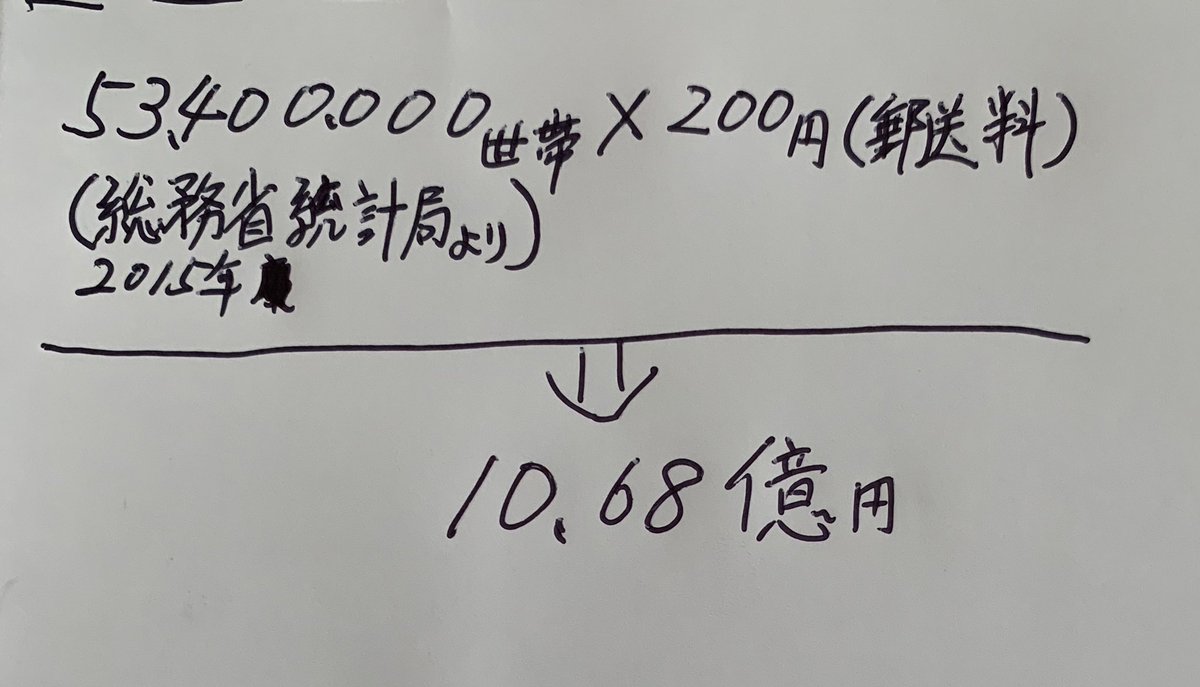 53,400,000世帯×200円(郵送料)
(総務省統計局より)
2015年
10.68億円